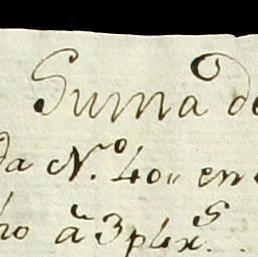 Suma de
da N.º 40,, en
ho à 3 p